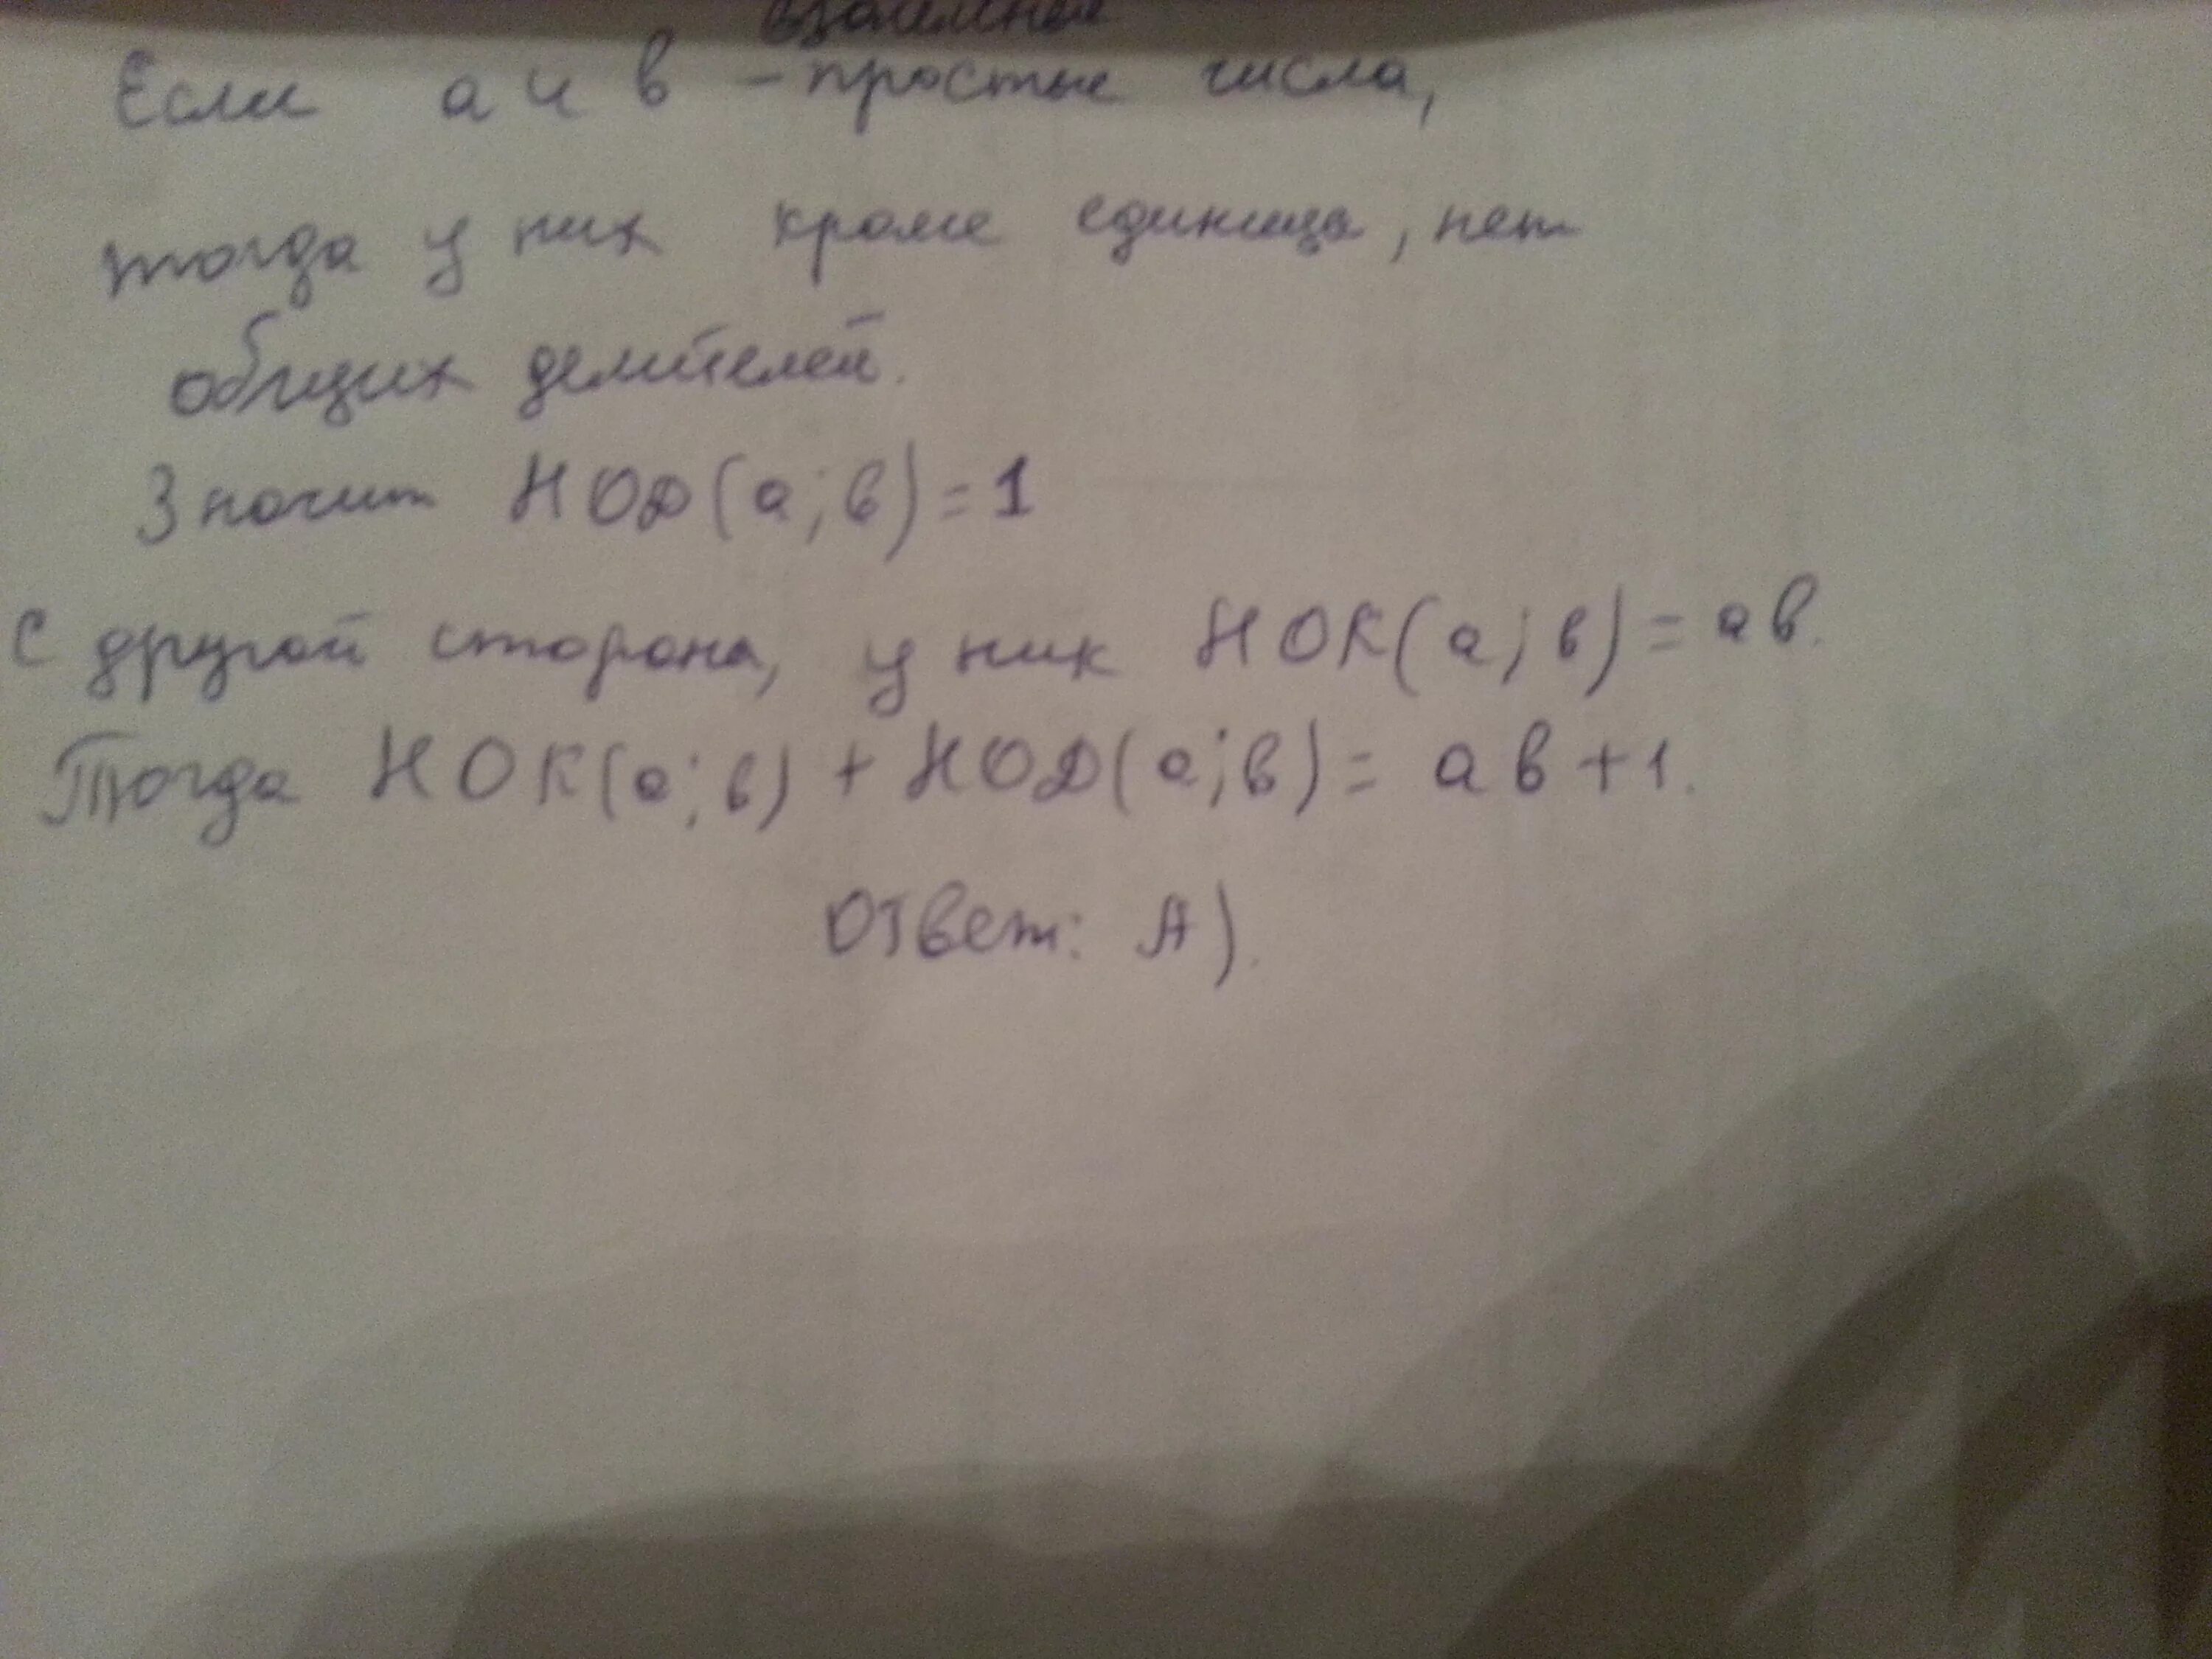 взаимные
Если а и в - простые числа,
тогда у них кроме единица, нет
общих делителей.
Значит НОД(а;в)=1
С другой сторона, у них НОК(а;в)=ав.
Тогда НОК(а;в)+НОД(а;в)= ав+1.
Ответ: А).